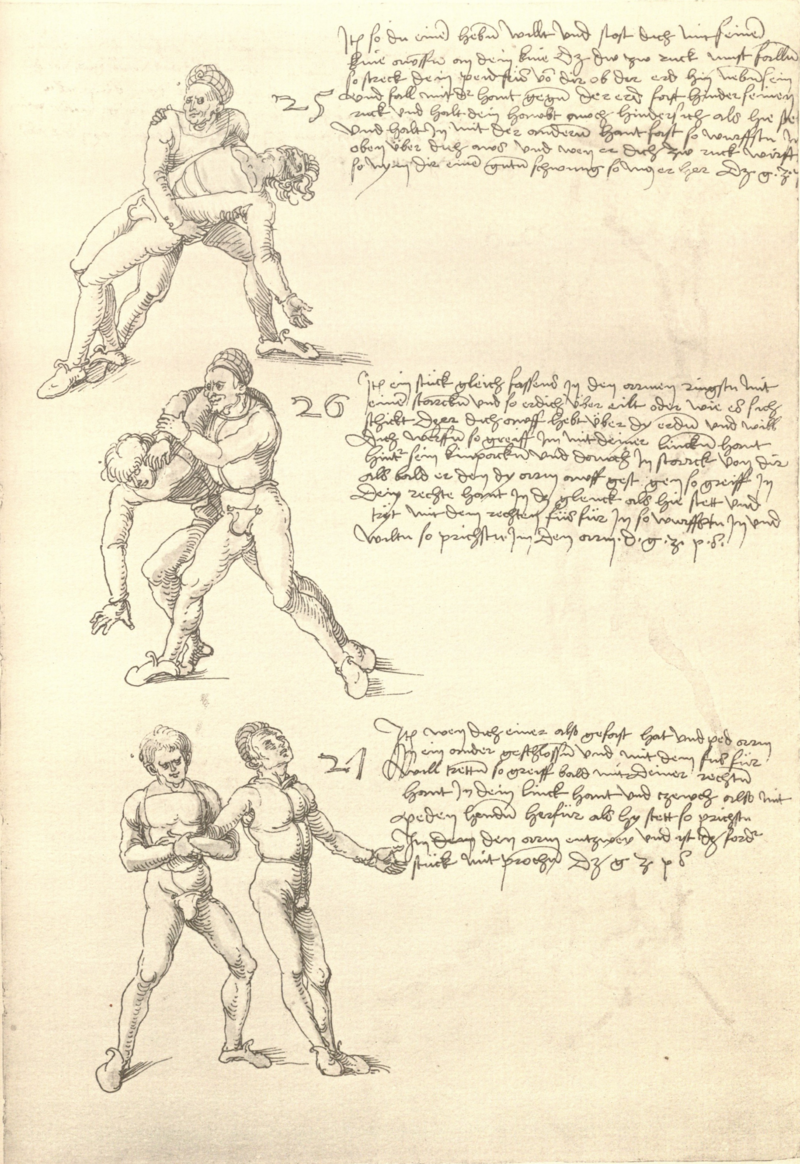 25
Itz so du einē hebn willt vnd stost dich mit seinē
knie awssn an dein knie Dz dw zw ruck must falln
so streck dein ped füs vō dir ob der erd hin nebn sein
vnd fall mit dr hant gegn der erd fast hinder seinen
ruck vnd halt dein hawbt awch hindersich als hie ste
vnd halt In mit der andern hant fast so wurfstu In
oben über dich aws vnd wen er dich zw ruck wirft
so nym dir einē gutn schwung so ways er her Dz g. z.
26
Itz ein stuck gleich fassens In den armen ringstu mit
einē starckn vnd so er dich über eilt oder wie es sich
schickt Daz er dich awff hebt über dy erdn vnd will
dich werfn so greiff Im mit deiner linckn hant
hintr sein kinpackn vnd danach In starck von dir
als bald er den dy arm awff gest gen so greiff In
Dein rechte hant In dz glenck als hie stett vnd
tryt mit dem rechten füs für In so wurffstu In vnd
wiltu so prichstu Im den arm. d. g. z. p. s.
27
Itz wen dich einer also gefast hat vnd ped arm
In ein ander geschlossn vnd mit dem fus für
will trettn so greiff bald mit deiner rechtn
hant In dein linck hant vnd zewch also mit
peden handn herfür als hy stett so prichstu
Im den arm entzwey vnd ist dz fordr
stück mit prochn Dz g z p s